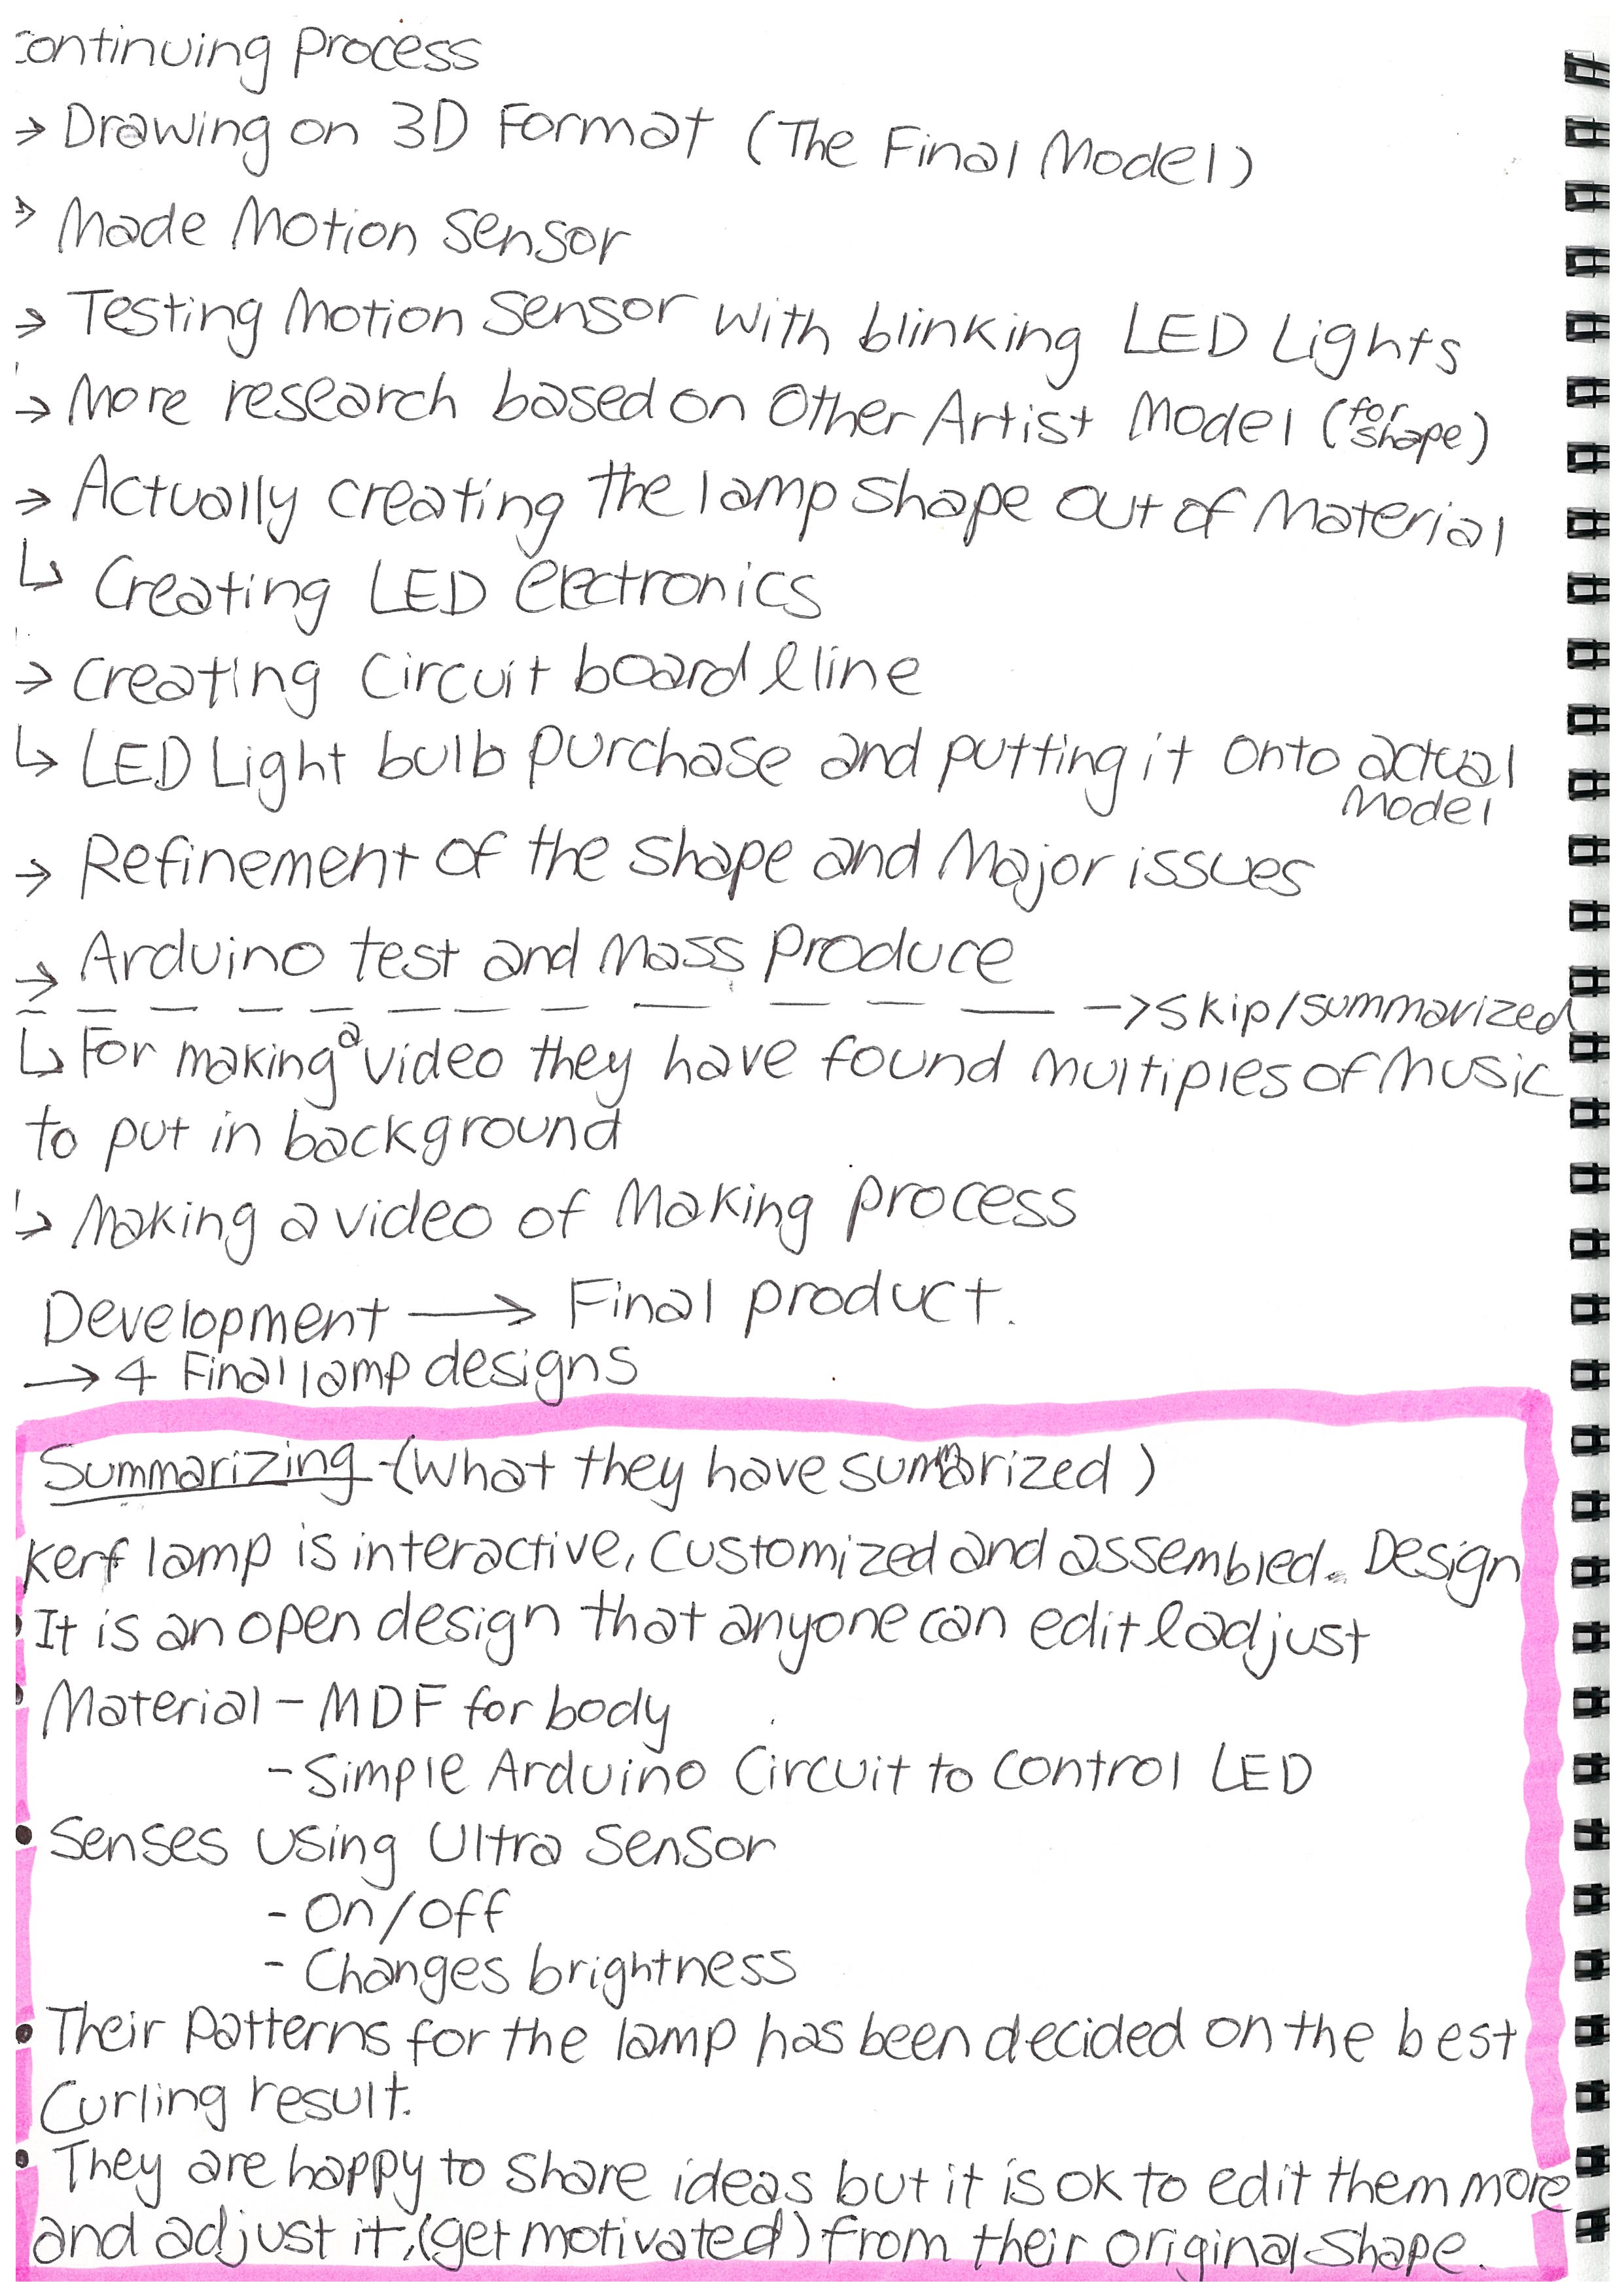 continuing process
→ Drawing on 3D Format (The Final Model)
→ Made Motion sensor
→ Testing Motion Sensor with blinking LED Lights
→ More research based on Other Artist Model (for shape)
→ Actually creating the lamp shape out of Material
↳ Creating LED electronics
→ creating circuit board & line
↳ LED Light bulb purchase and putting it onto actual
Model
→ Refinement of the shape and Major issues
→ Arduino test and mass produce
→ skip/summarized
↳ For making a video they have found multiples of music
to put in background
↳ Making a video of Making process
Development → Final product.
→ 4 Final lamp designs
Summarizing - (what they have summarized)
Kerf lamp is interactive, customized and assembled. Design
• It is an open design that anyone can edit & adjust
• Material - MDF for body
- Simple Arduino Circuit to control LED
• Senses using Ultra Sensor
- On/Off
- Changes brightness
• Their patterns for the lamp has been decided on the best
Curling result.
• They are happy to share ideas but it is ok to edit them more
and adjust it, (get motivated) from their original shape.